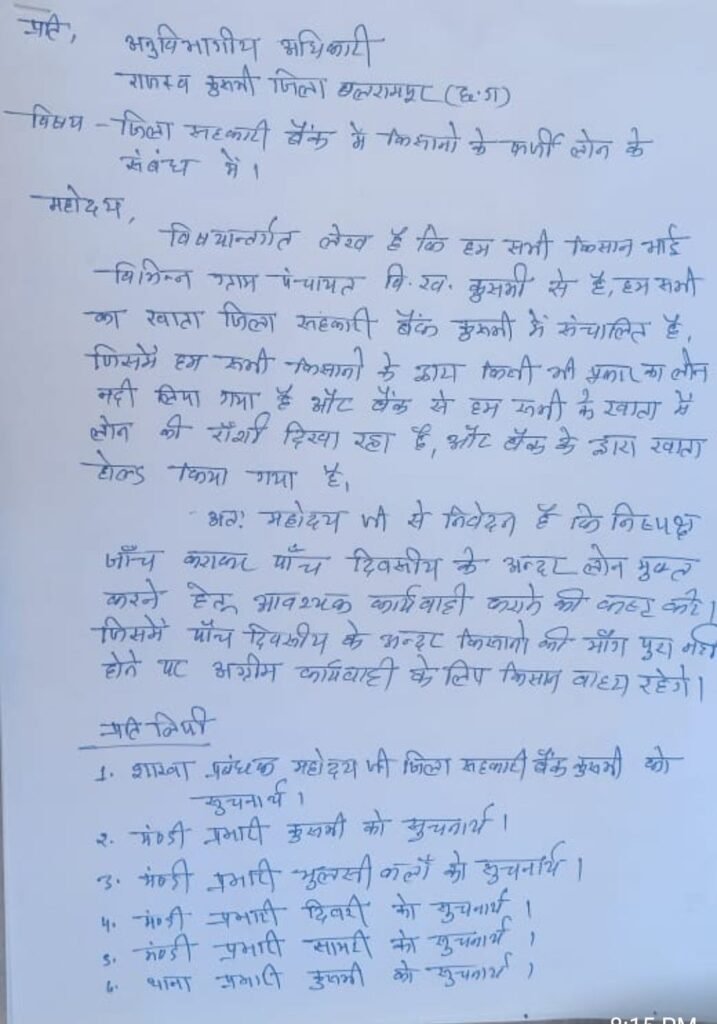 प्रति,
अनुविभागीय अधिकारी
राजस्व कुसमी जिला बलरामपुर (छ.ग)
विषय - जिला सहकारी बैंक में किसानो के फर्जी लोन के
संबंध में।
महोदय,
विषयान्तर्गत लेख है कि हम सभी किसान भाई
विभिन्न ग्राम पंचायत वि.ख. कुसमी से है, हम सभी
का खाता जिला सहकारी बैंक कुसमी में संचालित है,
जिसमें हम सभी किसानो के द्वारा किसी भी प्रकार का लोन
नही लिया गया है और बैंक से हम सभी के खाता में
लोन की राँशी दिखा रहा है, और बैंक के द्वारा खाता
होल्ड किया गया है,
अतः महोदय जी से निवेदन है कि निष्पक्ष
जाँच कराकर पाँच दिवसीय के अन्दर लोन मुक्त
करने हेतु आवश्यक कार्यवाही कराने की कष्ट करें।
जिसमें पाँच दिवसीय के अन्दर किसानो की माँग पुरा नही
होने पर अग्रीम कार्यवाही के लिए किसान वाध्य रहेगे।
प्रति लिपी
1. शाखा प्रबंधक महोदय जी जिला सहकारी बैंक कुसमी को
सुचनार्थ।
2. मंण्डी प्रभारी कुसमी को सुचनार्थ।
3. मंण्डी प्रभारी कलाँ को सुचनार्थ।
4. मंण्डी प्रभारी को सुचनार्थ।
5. मंण्डी प्रभारी सामरी को सुचनार्थ।
6. थाना प्रभारी कुसमी को सुचनार्थ।
8:15 PM